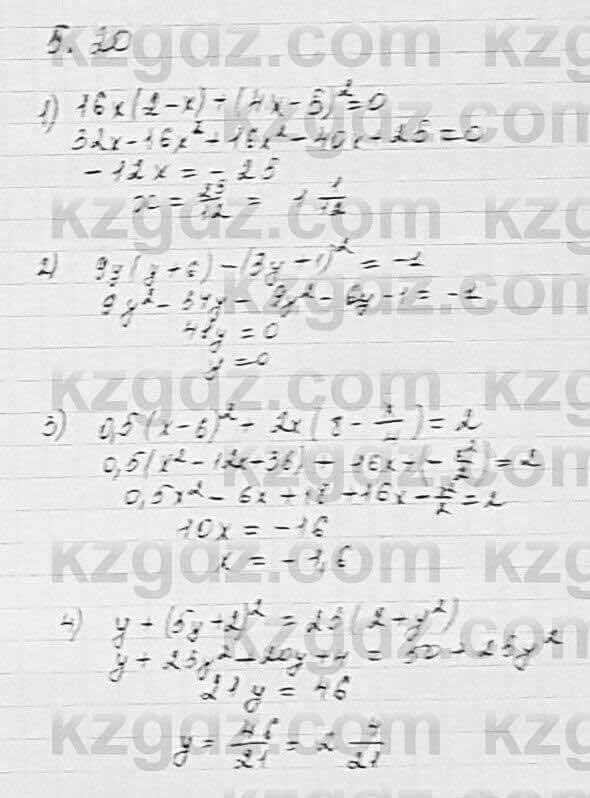 5.20
1) 16x(2-x)+(4x-5)²=0
32x-16x²+16x²-40x+25=0
-12x=-25
x=25/12= 1/12
2) 9y(y+6)-(3y+1)²=-1
9y²-54y-9y²-6y-1=-1
48y=0
y=0
3) 0,5(x-6)²+2x(8-x/4)=2
0,5(x²-12x+36)+16x+(-x²/2)=2
0,5x²-6x+18+16x-x²/2=2
10x=-16
x=-1,6
4) y+(5y+2)²=25(2+y²)
y+25y²+20y+4=50+25y²
21y=46
y=46/21=2 4/21
kzgdz.com
kzgdz.com
kzgdz.com
kzgdz.com
kzgdz.com
kzgdz.com
kzgdz.com
kzgdz.com
kzgdz.com